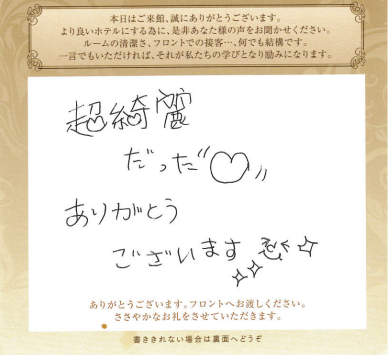 本日はご来館、誠にありがとうございます。
より良いホテルにする為に、是非あなた様の声をお聞かせください。
ルームの清潔さ、フロントでの接客…、何でも結構です。
一言でもいただければ、それが私たちの学びとなり励みになります。
超綺麗
だった♡〃
ありがとう
ございます☆
ありがとうございます。フロントへお渡しください。
ささやかなお礼をさせていただきます。
書ききれない場合は裏面へどうぞ